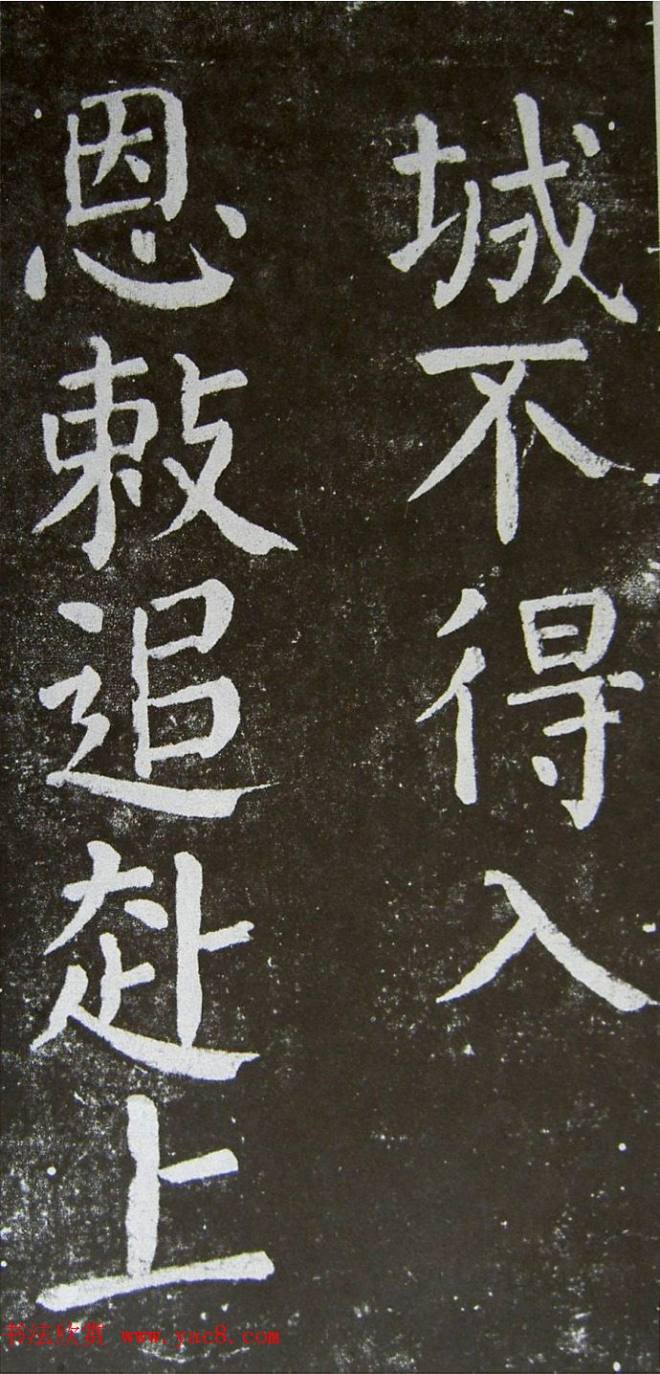 城不得入
恩敕追赴上
书法欣赏 www.yac8.com